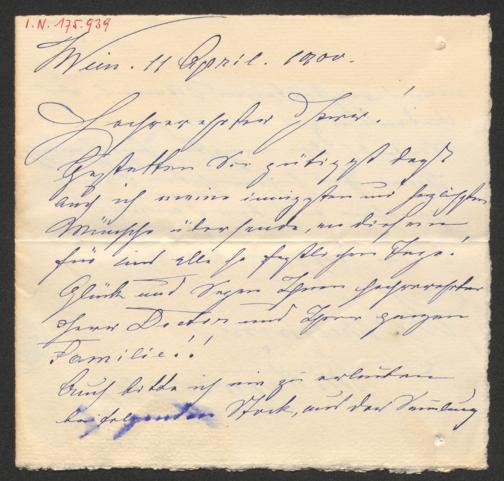 I.N. 175.939
Wien. 11 April. 1900.
Hochverehrter Herr!
Gestatten Sie gütigst daß
auch ich meine innigsten und herzlichsten
Wünsche übersende, an diesem
für uns alle so festlichen Tage!
Glück und Segen Ihnen hochverehrter
Herr Doctor und Ihrer ganzen
Familie!!
Auch bitte ich mir zu erlauben
beifolgenden Stock, aus der Samlung